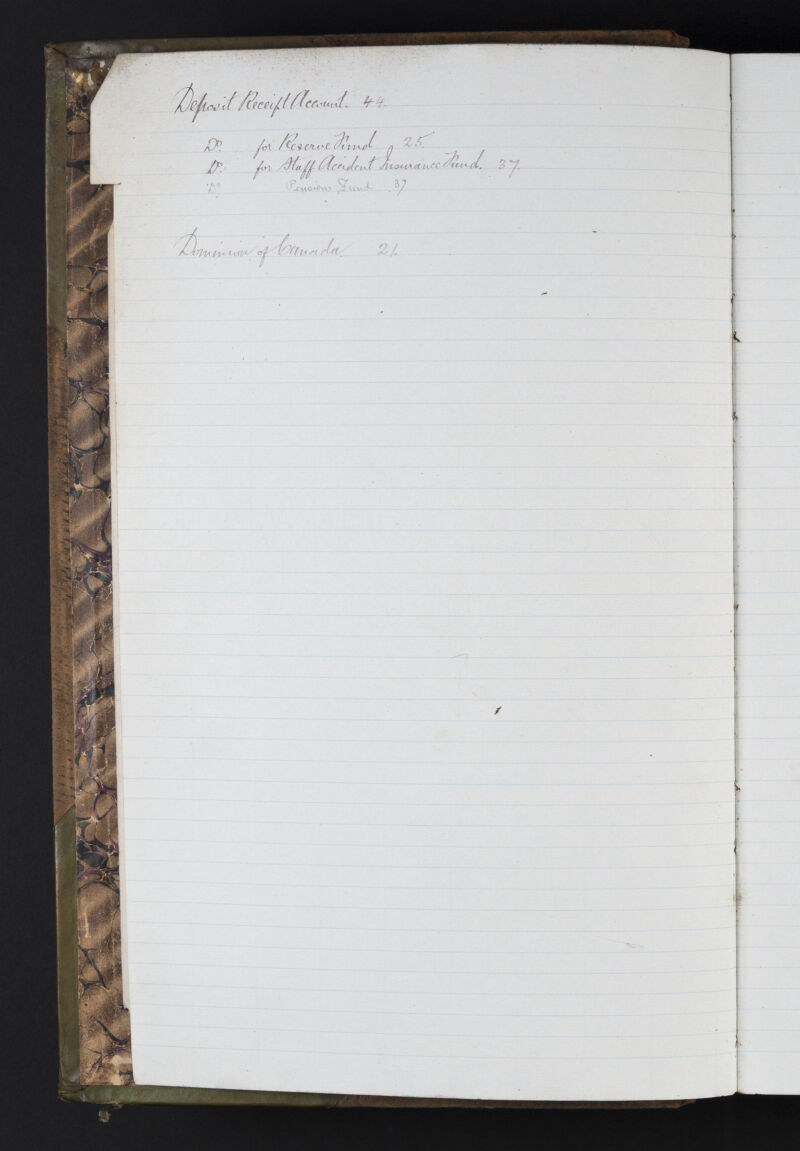 Deposit Receipt Account. 44.
Do. for Reserve Fund 25.
Do. for Staff Accident Insurance Fund. 37.
Do Pension Fund 37
Dominion of Canada. 21.